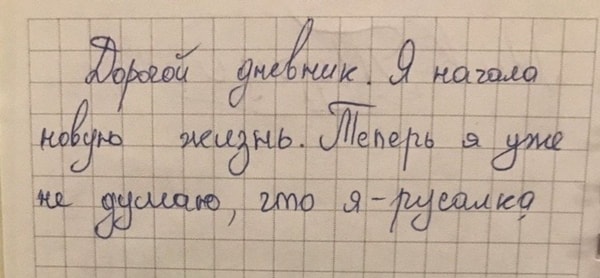 Дорогой дневник. Я начала
новую жизнь. Теперь я уже
не думаю, что я-русалка